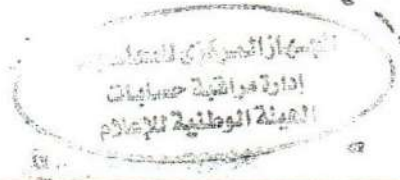 الجهاز المركزي للمحاسبات
إدارة مراقبة حسابات
الهيئة الوطنية للإعلام